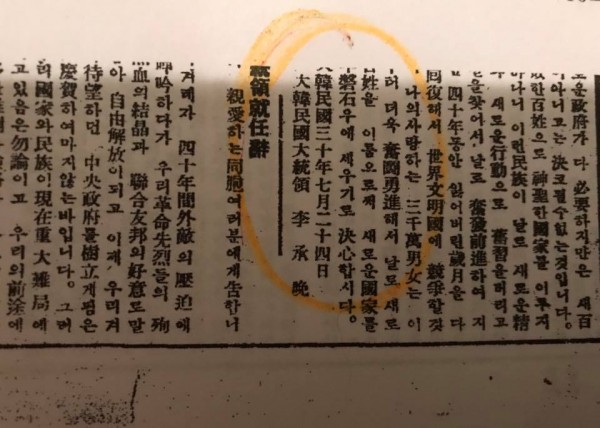 로운政府가 다 必要하지만은 새百
이아니고는 決코될수없는것입니다.
敗한百姓으로 神聖한國家를 이루지
하나니 이런民族이 날로 새로운精
새로운行動으로 舊習을버리고
을찾어서 날로 奮發前進하여 지
四十年동안 잃어버린歲月을 다
回復해서 世界文明國에 競爭할것
나의사랑하는 三千萬男女는 이
터 더욱 奮鬪勇進해서 날로 새로
百姓을 이룸으로써 새로운國家를
盤石우에 세우기로 決心합시다.
大韓民國三十年七月二十四日
大韓民國大統領 李 承 晩
統領就任辭
親愛하는 同胞여러분에게告합니
겨레가 四十年間外敵의 壓迫에
呻吟하다가 우리革命先烈들의 殉
血의結晶과 聯合友邦의好意로말
아 自由解放이되고 이제 우리겨
待望하던 中央政府를樹立케됨은
慶賀하여마지않는바입니다. 그러
리國家와民族이現在重大難局에
고있음은勿論이고 우리의前途에